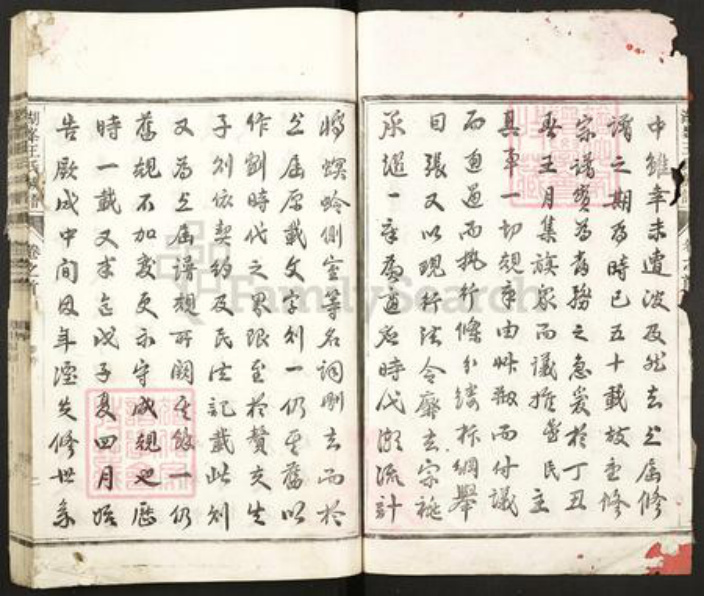 中雖幸未遭波及然去上屆修
譜之期為時已五十載故重修
宗譜實為當務之急爰於丁丑
春王月集族眾而議推 民主
其事一切規章由 而付議
而通過而執行條分縷析綱舉
目張又以現行法令廢去宗祧
承繼一章為適應時代潮流計
將螟蛉側室等名詞刪去而於
上屆原載文字則一仍其舊以
作劃時代之界限至於贅夫生
子則依契約及民法記載此則
又為上屆譜規所闕其餘一仍
舊規不加變更亦守成規也歷
時一載又半迄戊子夏四月始
告厥成中間因年湮失修世系
湖峯王氏宗譜
卷之首
FamilySearch